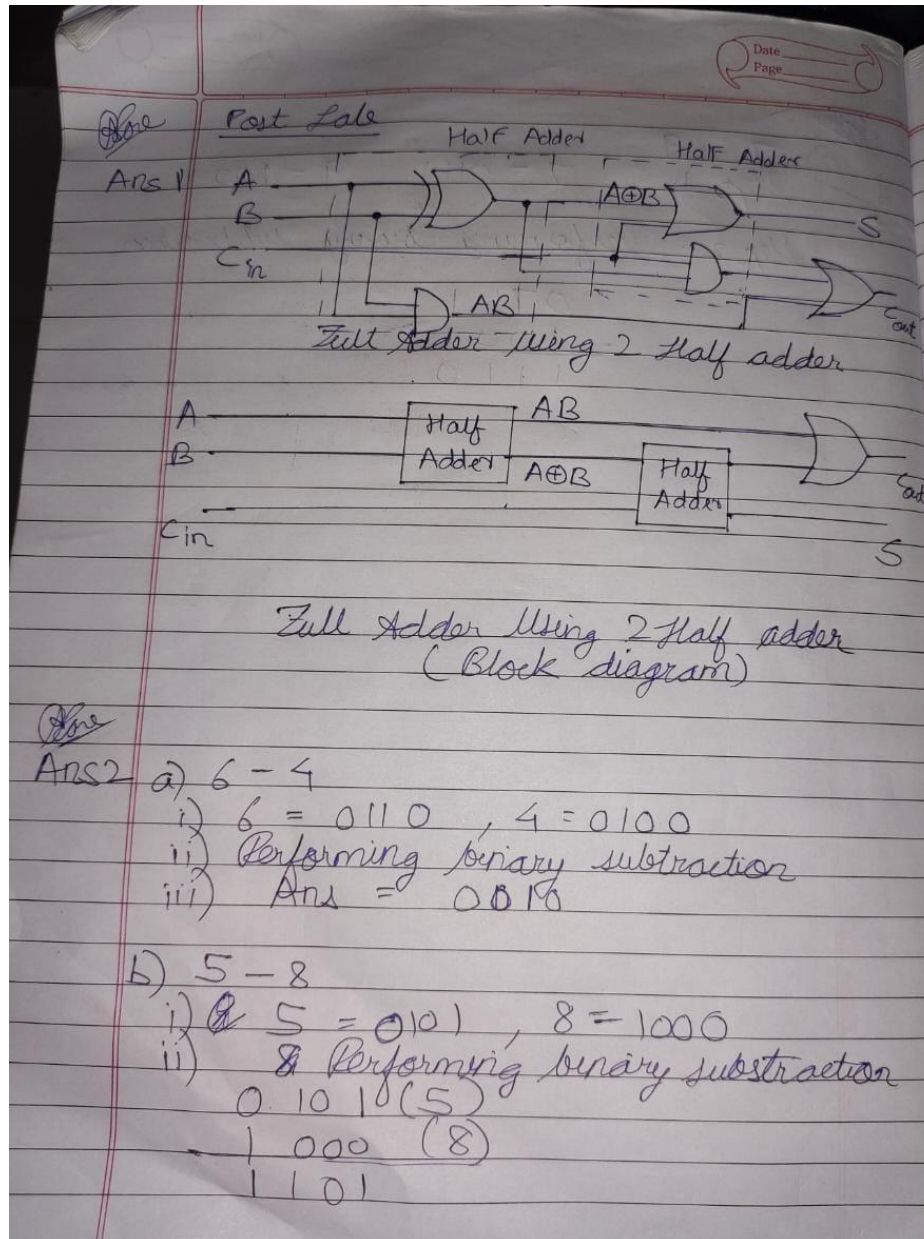 Date
Page
Post Lab
Half Adder
Half Adder
Ans 1
A
B
Cin
A⊕B
S
AB
Cout
Full Adder Using 2 Half adder
A
B
Cin
Half Adder
AB
A⊕B
Half Adder
Cout
S
Full Adder Using 2 Half adder
(Block diagram)
Ans2 a) 6 - 4
i) 6 = 0110 , 4 = 0100
ii) Performing binary subtraction
iii) Ans = 0010
b) 5 - 8
i) 5 = 0101 , 8 = 1000
ii) Performing binary substraction
0 1 0 1 (5)
- 1 000 (8)
1 1 0 1